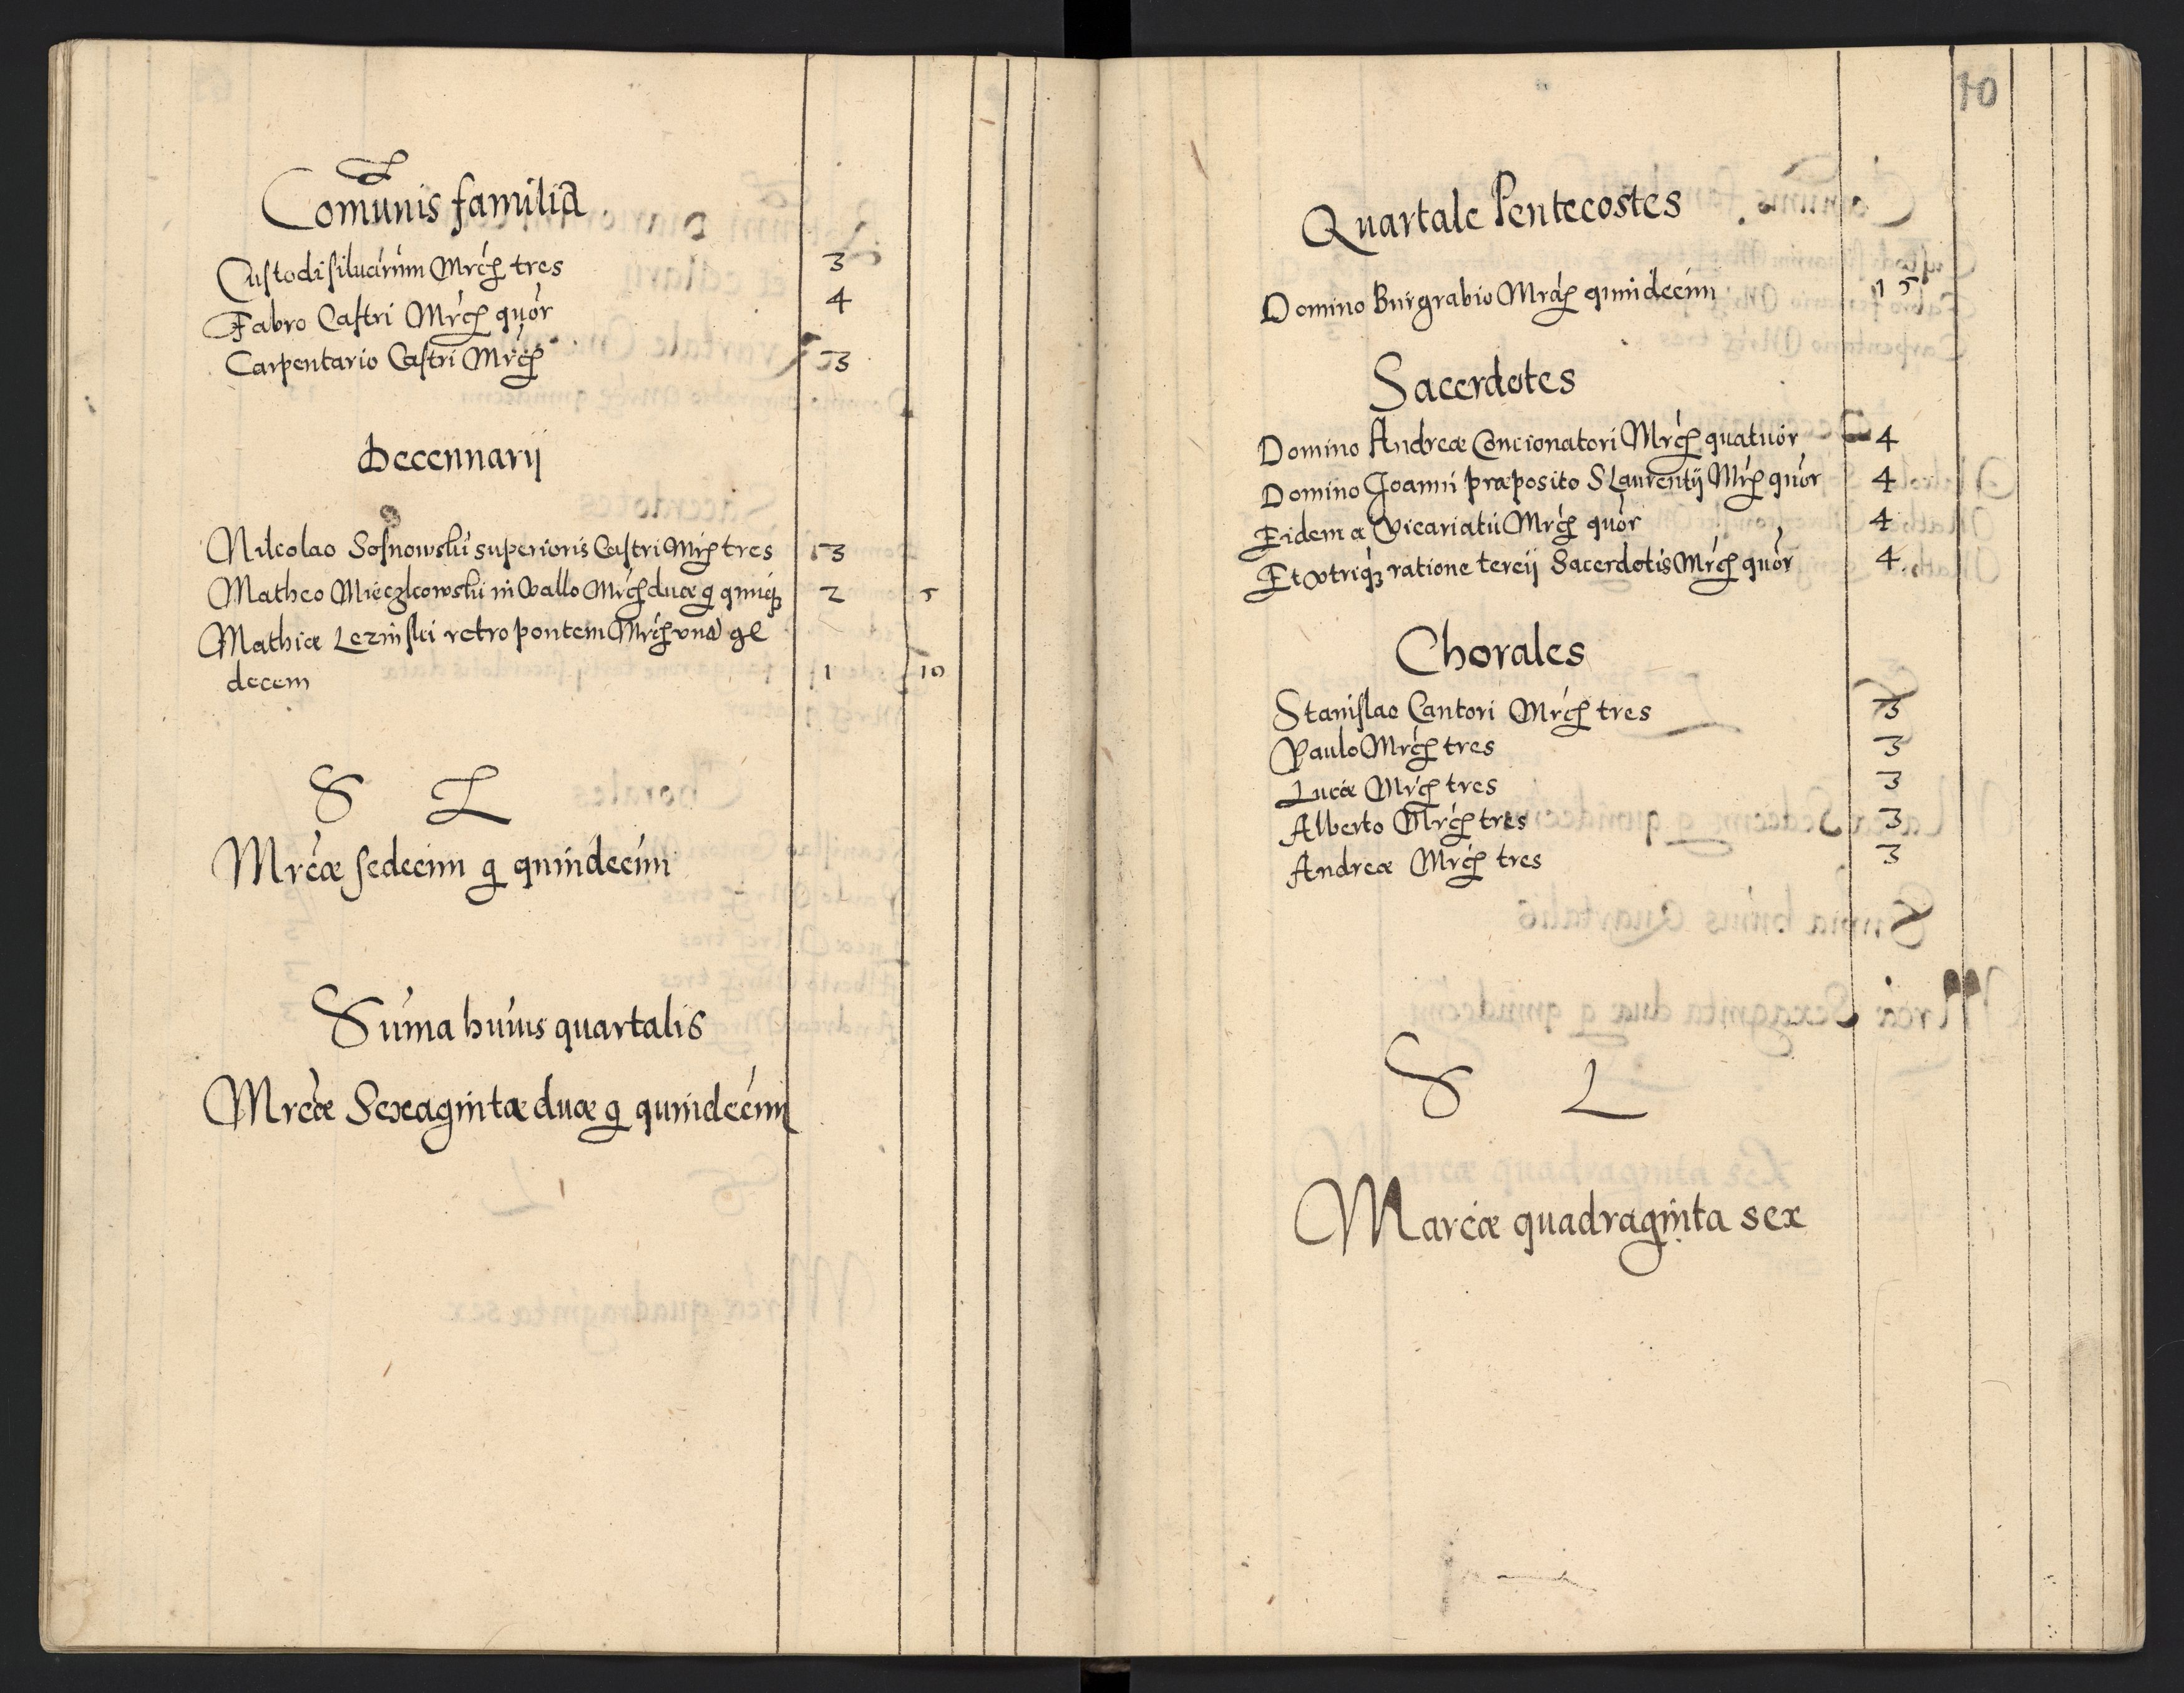 Comunis familia
Custodi siluarum Mrcas tres 3
Fabro Castri Mrcas quor 4
Carpentario Castri Mrcas 3
Decennarij
Nicolao Sosnowski superioris Castri Mrcas tres 3
Matheo Mieczkowski in vallo Mrcas duæ g quinq 2 5
Mathiæ Lezinski retro pontem Mrcas vna gl
decem 1 10
S L
Mrcæ sedecim g quindecim
Suma huius quartalis
Mrcæ Sexagintæ duæ g quindecim
10
Quartale Pentecostes
Domino Burgrabio Mrcas quindecim 15
Sacerdotes
Domino Andreæ Concionatori Mrcas quatuor 4
Domino Joanni præposito S Laurentij Mrcas quor 4
Eidem a Vicariatu Mrcas quor 4
Et vtriq ratione tercij Sacerdotis Mrcas quor 4
Chorales
Stanislao Cantori Mrcas tres 3
Paulo Mrcas tres 3
Lucæ Mrcas tres 3
Alberto Mrcas tres 3
Andreæ Mrcas tres 3
S L
Marcæ quadraginta sex